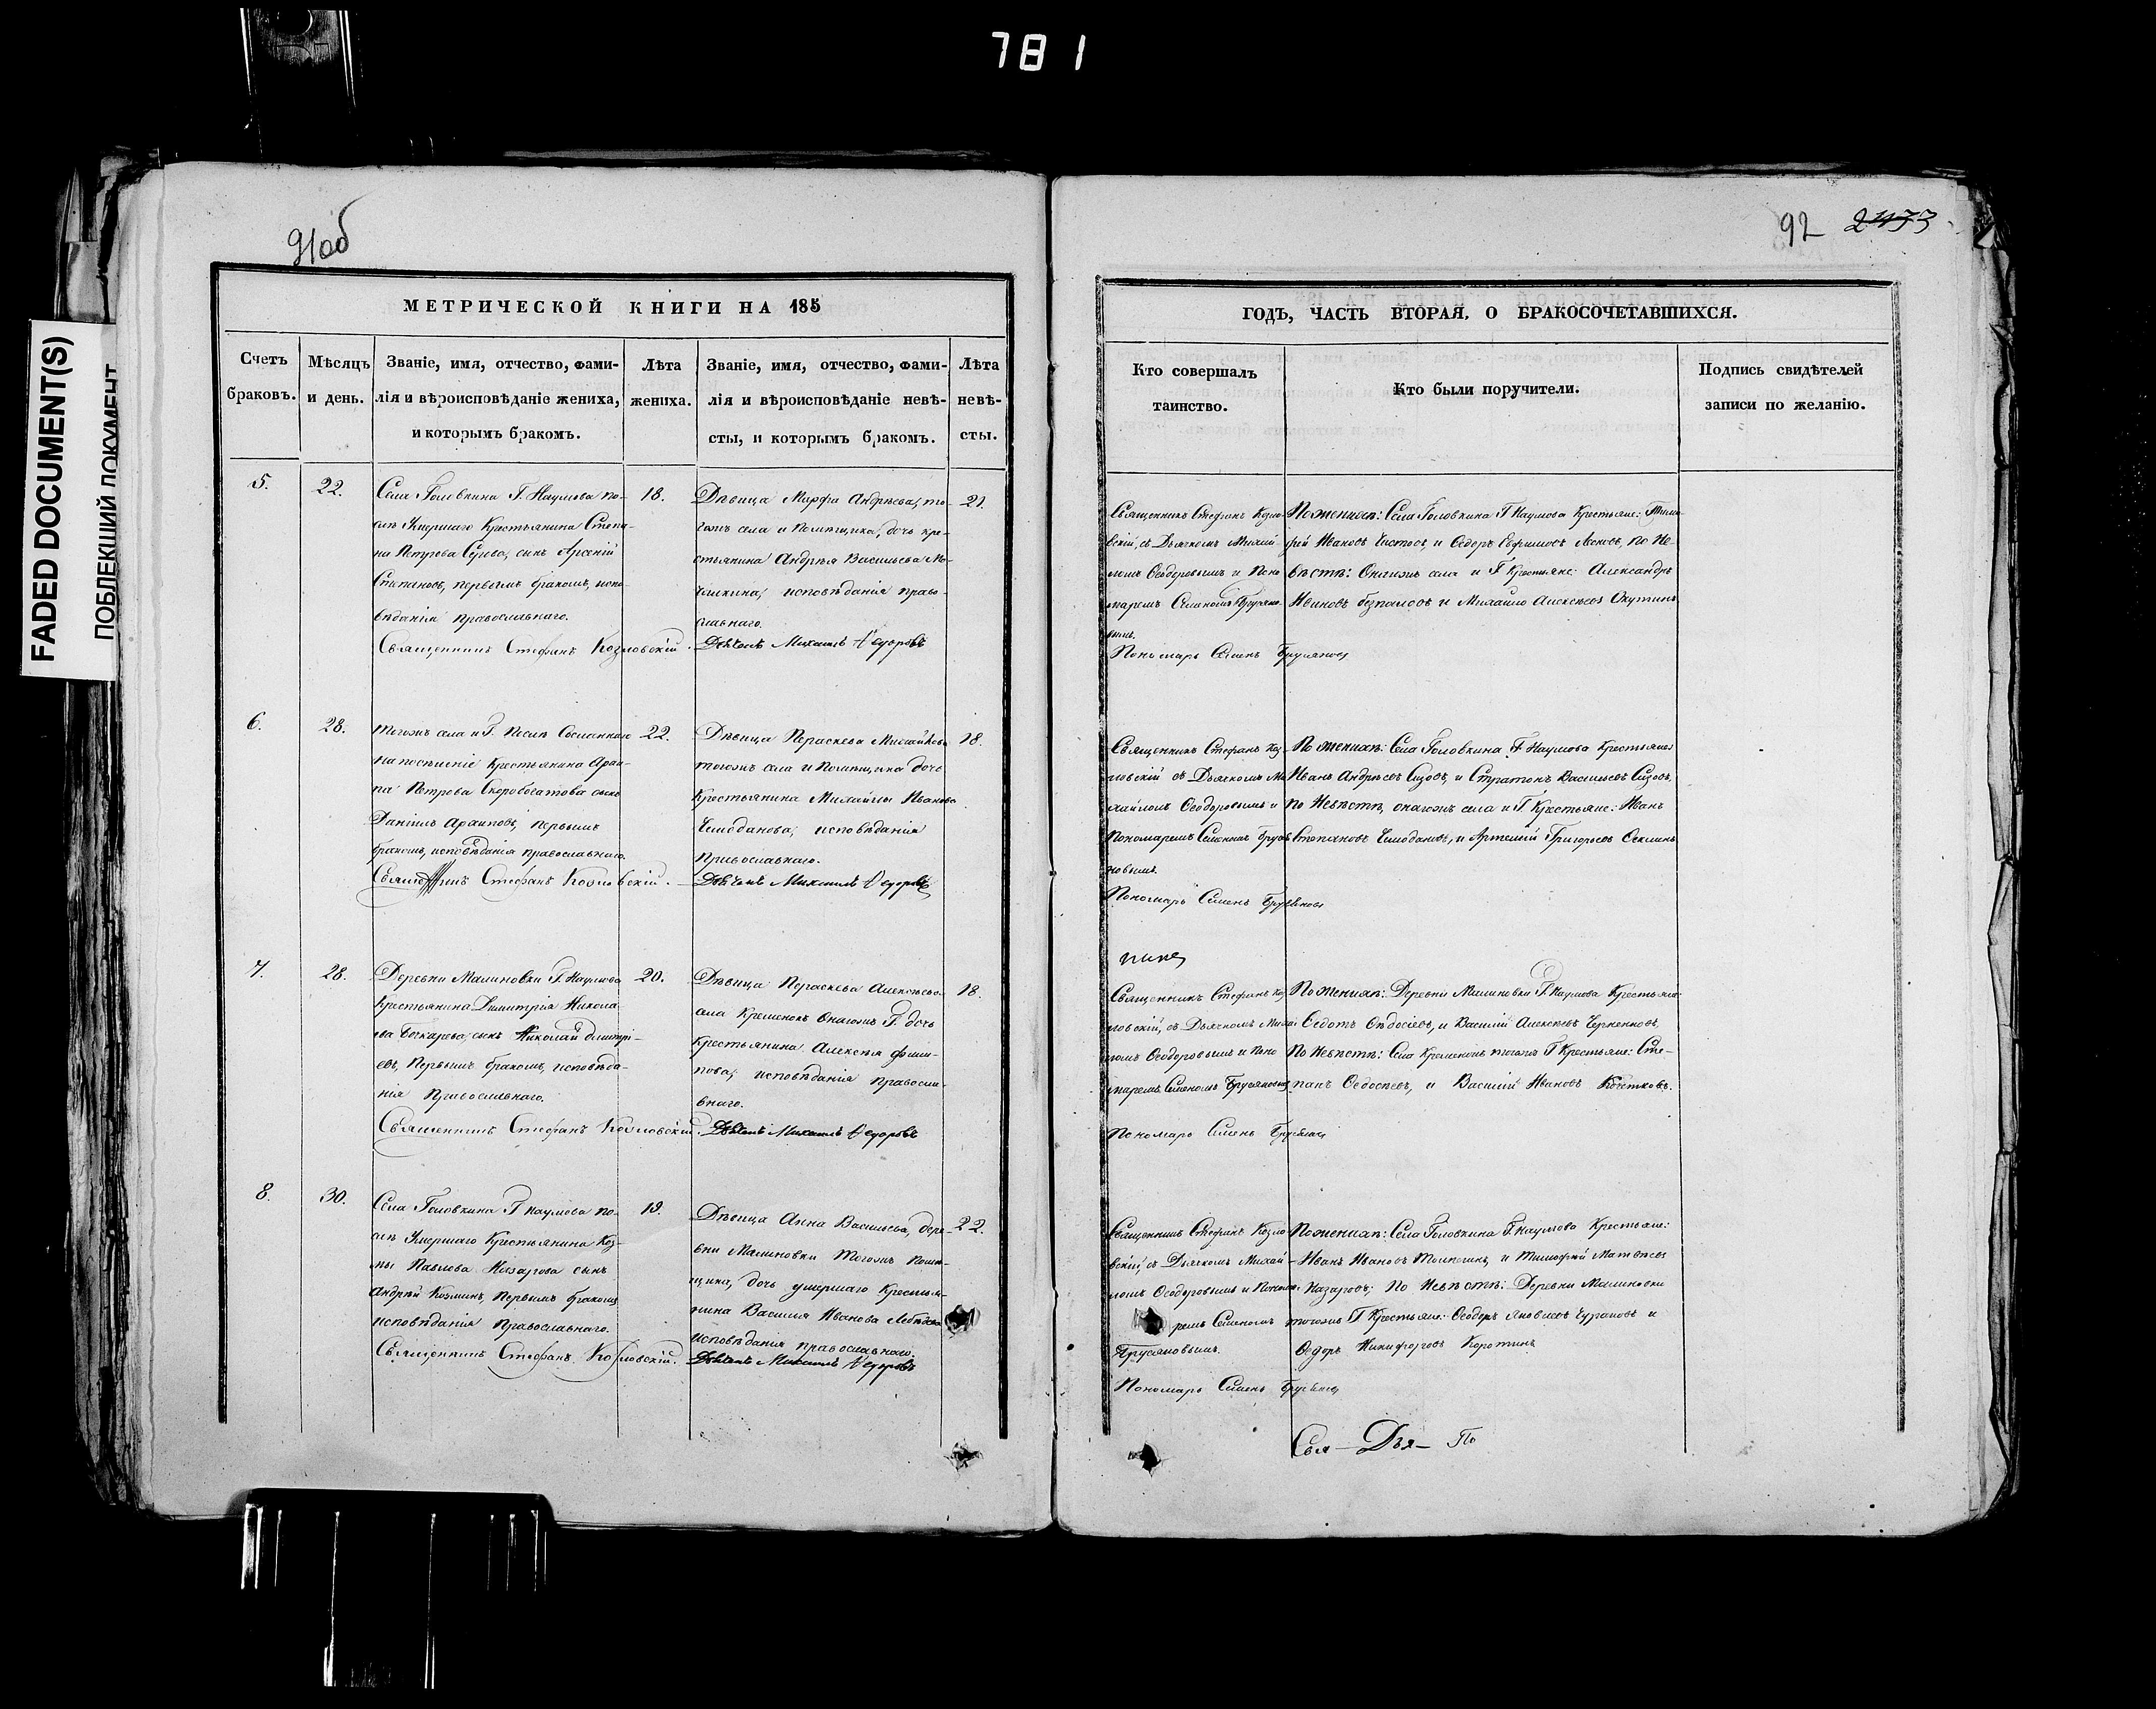 781
FADED DOCUMENT(S)
ПОБЛЕКШИЙ ДОКУМЕНТ
91об
МЕТРИЧЕСКОЙ КНИГИ НА 185
Счетъ браковъ.
Мѣсяцъ и день.
Званіе, имя, отчество, фами-
лія и вѣроисповѣданіе жениха,
и которымъ бракомъ.
Лѣта
жениха.
Званіе, имя, отчество, фами-
лія и вѣроисповѣданіе невѣ-
сты, и которымъ бракомъ.
Лѣта
невѣ-
сты.
5.
22.
Села Головкина Г. Наумова по-
слѣ Умершаго Крестьянина Степа-
на Петрова сынъ Арсеній
Степановъ, первымъ бракомъ, испо-
вѣданія православнаго.
Священникъ Стефанъ Козловскій.
18.
Дѣвица Марфа Андрѣева, то-
гожъ села и Помѣщика, дочь кре-
стьянина Андрѣя Васильева
исповѣданія право-
славнаго.
Дьячекъ Михаилъ Ѳедоровъ
21.
6.
28.
тогожъ села и Г. Послѣ Сосланнаго
на поселеніе Крестьянина Архи-
па Петрова Скоробогатова сынъ
Даніилъ Архиповъ, первымъ
бракомъ, исповѣданія православнаго.
Священникъ Стефанъ Козловскій.
22.
Дѣвица Параскева Михайлова
тогожъ села и Помѣщика дочь
Крестьянина Михайлы Иванова
Чемоданова, исповѣданія
Православнаго.
Дьячекъ Михаилъ Ѳедоровъ
18.
7.
28.
Деревни Малиновки Г. Наумова
Крестьянина Димитрія Никола-
ева Бочкарева сынъ Николай Димитрі-
евъ, Первымъ бракомъ, исповѣда-
нія Православнаго.
Священникъ Стефанъ Козловскій.
20.
Дѣвица Параскева Алексѣева
села Кременокъ Онагожъ Г. дочь
Крестьянина Алексѣя Филип-
пова, исповѣданія правосла-
внаго.
Дьячекъ Михаилъ Ѳедоровъ
18.
8.
30.
Села Головкина Г Наумова по-
слѣ Умершаго Крестьянина Коз-
мы Павлова Назарова сынъ
Андрѣй Козминъ, Первымъ бракомъ
исповѣданія Православнаго.
Священникъ Стефанъ Козловскій.
19.
Дѣвица Анна Васильева, дере-
вни Малиновки Тогожъ Помѣ-
щика, дочь умершаго Крестья-
нина Василья Иванова Лебедева
исповѣданія православнаго.
Дьячекъ Михаилъ Ѳедоровъ
22.
92 2473
ГОДЪ, ЧАСТЬ ВТОРАЯ, О БРАКОСОЧЕТАВШИХСЯ.
Кто совершалъ
таинство.
Кто были поручители.
Подпись свидѣтелей
записи по желанію.
Священникъ Стефанъ Козло-
вскій, съ Дьячкомъ Михай-
ломъ Ѳеодоровымъ и Поно-
маремъ Семеномъ Брусяно-
вымъ.
Пономарь Семенъ Брусяновъ
По женихѣ: Села Головкина Г Наумова Крестьяне: Тимо-
фей Ивановъ Чистовъ, и Ѳедоръ Ефимовъ по Не-
вѣстѣ: Онагожъ села и Г Крестьяне: Александръ
Ивановъ и Михайло Алексѣевъ
Священникъ Стефанъ Коз-
ловскій съ Дьячкомъ Ми-
хайломъ Ѳеодоровымъ и
Пономаремъ Семеномъ Бруся-
новымъ.
Пономарь Семенъ Брусяновъ
По женихѣ: Села Головкина Г. Наумова Крестьяне
Иванъ Андрѣевъ Сизовъ, и Стратонъ Васильевъ Сизовъ,
по Невѣстѣ, онагожъ села и Г Крестьяне: Иванъ
Степановъ Чемодановъ, и Артемій Григорьевъ
Священникъ Стефанъ Коз-
ловскій, съ Дьячкомъ Михай-
ломъ Ѳеодоровымъ и Поно-
маремъ Семеномъ Брусяновымъ
Пономарь Семенъ Брусяновъ
По женихѣ: Деревни Малиновки Г Наумова Крестьяне:
Ѳедотъ Ѳедосіевъ, и Василій Алексѣевъ Черненковъ,
По Невѣстѣ: Села Кременокъ тогожъ Г Крестьяне: Сте-
панъ Ѳедосѣевъ, и Василій Ивановъ Кочетковъ.
Священникъ Стефанъ Козло-
вскій, съ Дьячкомъ Михай-
ломъ Ѳеодоровымъ и Понома-
ремъ Семеномъ
Брусяновымъ.
Пономарь Семенъ Брусяновъ
По женихѣ: Села Головкина Г. Наумова Крестьяне:
Иванъ Ивановъ и Тимофѣй Матвѣевъ
Назаровъ; По Невѣстѣ: Деревни Малиновки
тогожъ Г Крестьяне: Ѳеодоръ Яковлевъ и
Ѳедоръ Никифоровъ Коротинъ
Свя— Дья— По